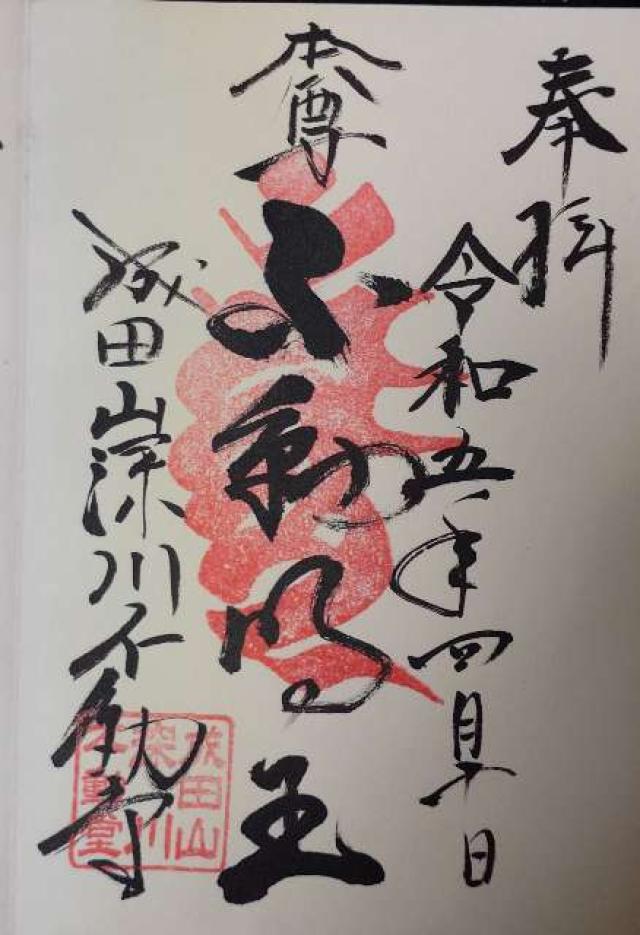 奉拝
令和五年四月十日
本尊
不動明王
成田山深川不動堂
成田山
深川
不動堂